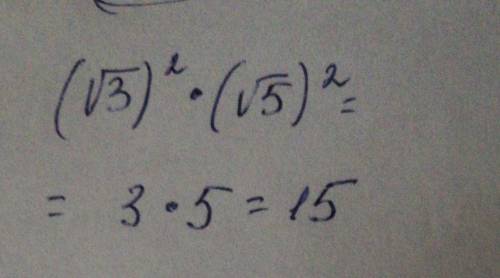 (√3)² · (√5)² =
= 3 · 5 = 15